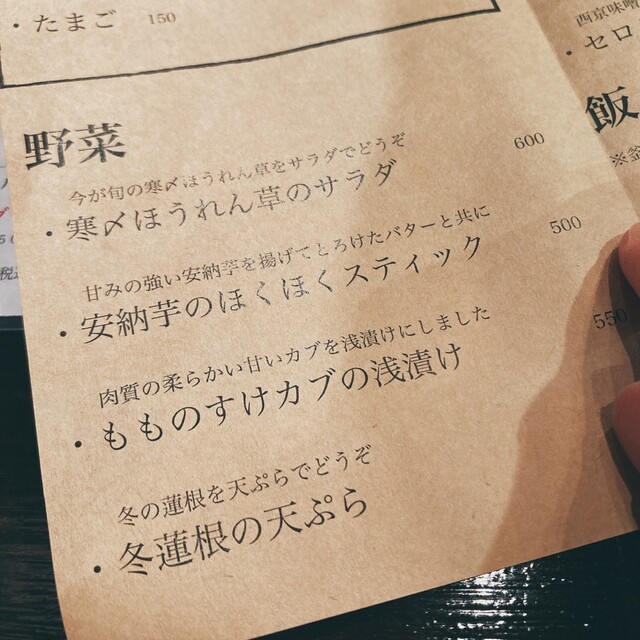 ・たまご 150
野菜
今が旬の寒〆ほうれん草をサラダでどうぞ
・寒〆ほうれん草のサラダ 600
甘みの強い安納芋を揚げてとろけたバターと共に
・安納芋のほくほくスティック 500
肉質の柔らかい甘いカブを浅漬けにしました
・もものすけカブの浅漬け 550
冬の蓮根を天ぷらでどうぞ
・冬蓮根の天ぷら
西京味噌
・セロ
飯